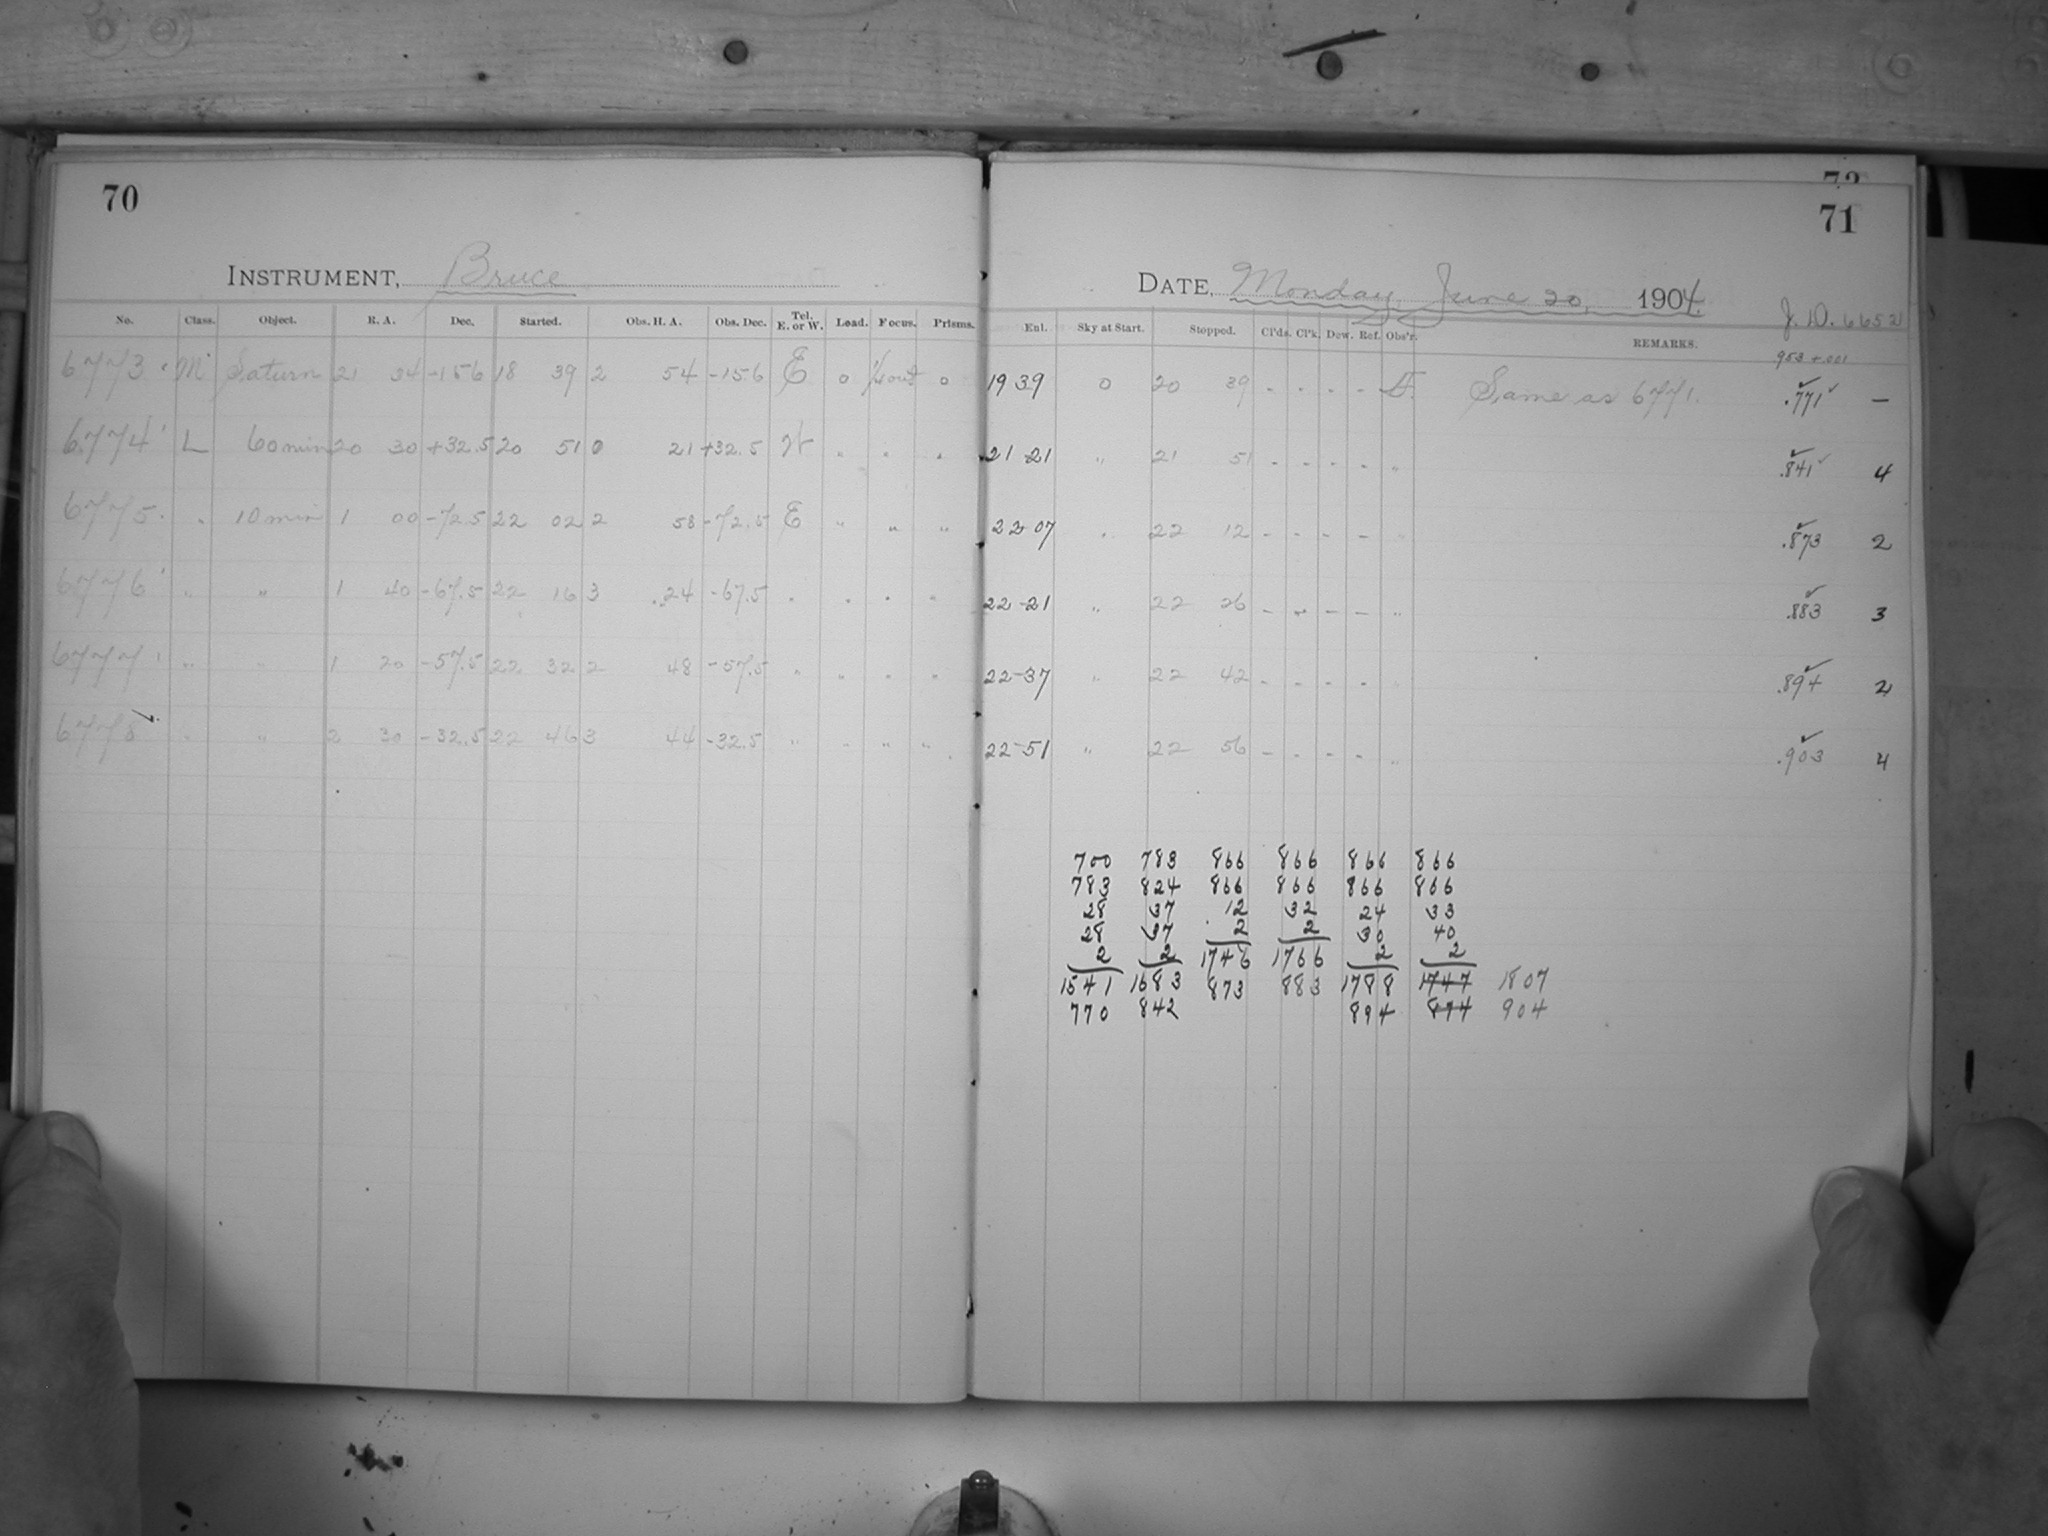 70
73
71
INSTRUMENT, Bruce
DATE, Monday June 20, 1904.
J. D. 6652
No. Class. Object. R. A. Dec. Started. Obs. H. A. Obs. Dec. Tel. E. or W. Load. Focus. Prisms. Enl. Sky at Start. Stopped. Cl'ds. Cl'k. Dew. Ref. Obs'r. REMARKS.
953 +.001
6773 M Saturn 21 34 -15.6 18 39 2 54 -15.6 E 0 out 0 19 39 0 20 39 - - - - Same as 6771. .771 -
6774 L 60 min 20 30 +32.5 20 51 0 21 +32.5 W " " " 21 21 " 21 51 - - - - " .841 4
6775 " 10 min 1 00 -72.5 22 02 2 58 -72.5 E " " " 22-07 " 22 12 - - - - " .873 2
6776 " " 1 40 -67.5 22 16 3 24 -67.5 " " " " 22-21 " 22 26 - - - - " .883 3
6777 " " 1 20 -57.5 22 32 2 48 -57.5 " " " " 22-37 " 22 42 - - - - " .894 2
6778 " " 2 30 -32.5 22 46 3 44 -32.5 " " " " 22-51 " 22 56 - - - - " .903 4
700 783 866 866 866 866
783 824 866 866 866 866
28 37 12 32 24 33
28 37 2 2 30 40
2 2 1746 1766 2 2
1541 1683 873 883 1788 1747 1807
770 842 894 874 904